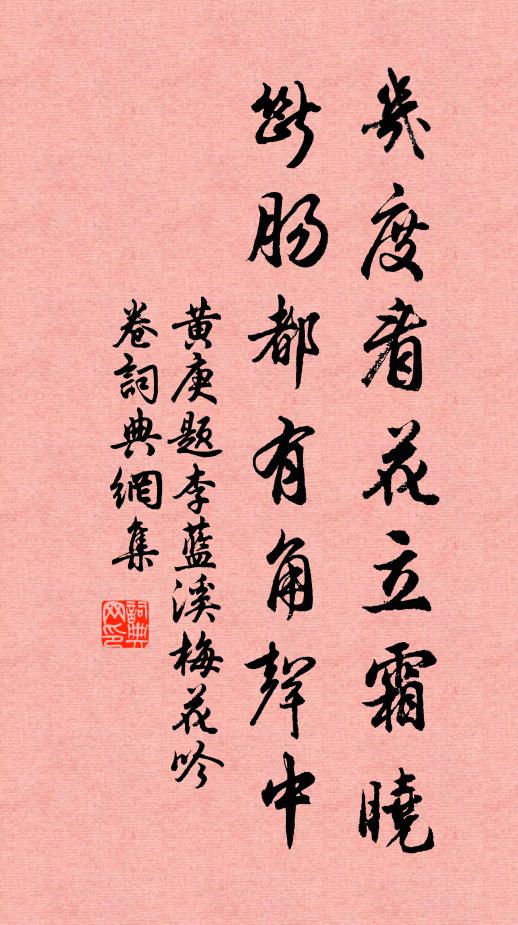 幾度看花立霜曉
斷腸都有角聲中
黃庚題李藍溪梅花吟
卷詞典網集
詞典網印